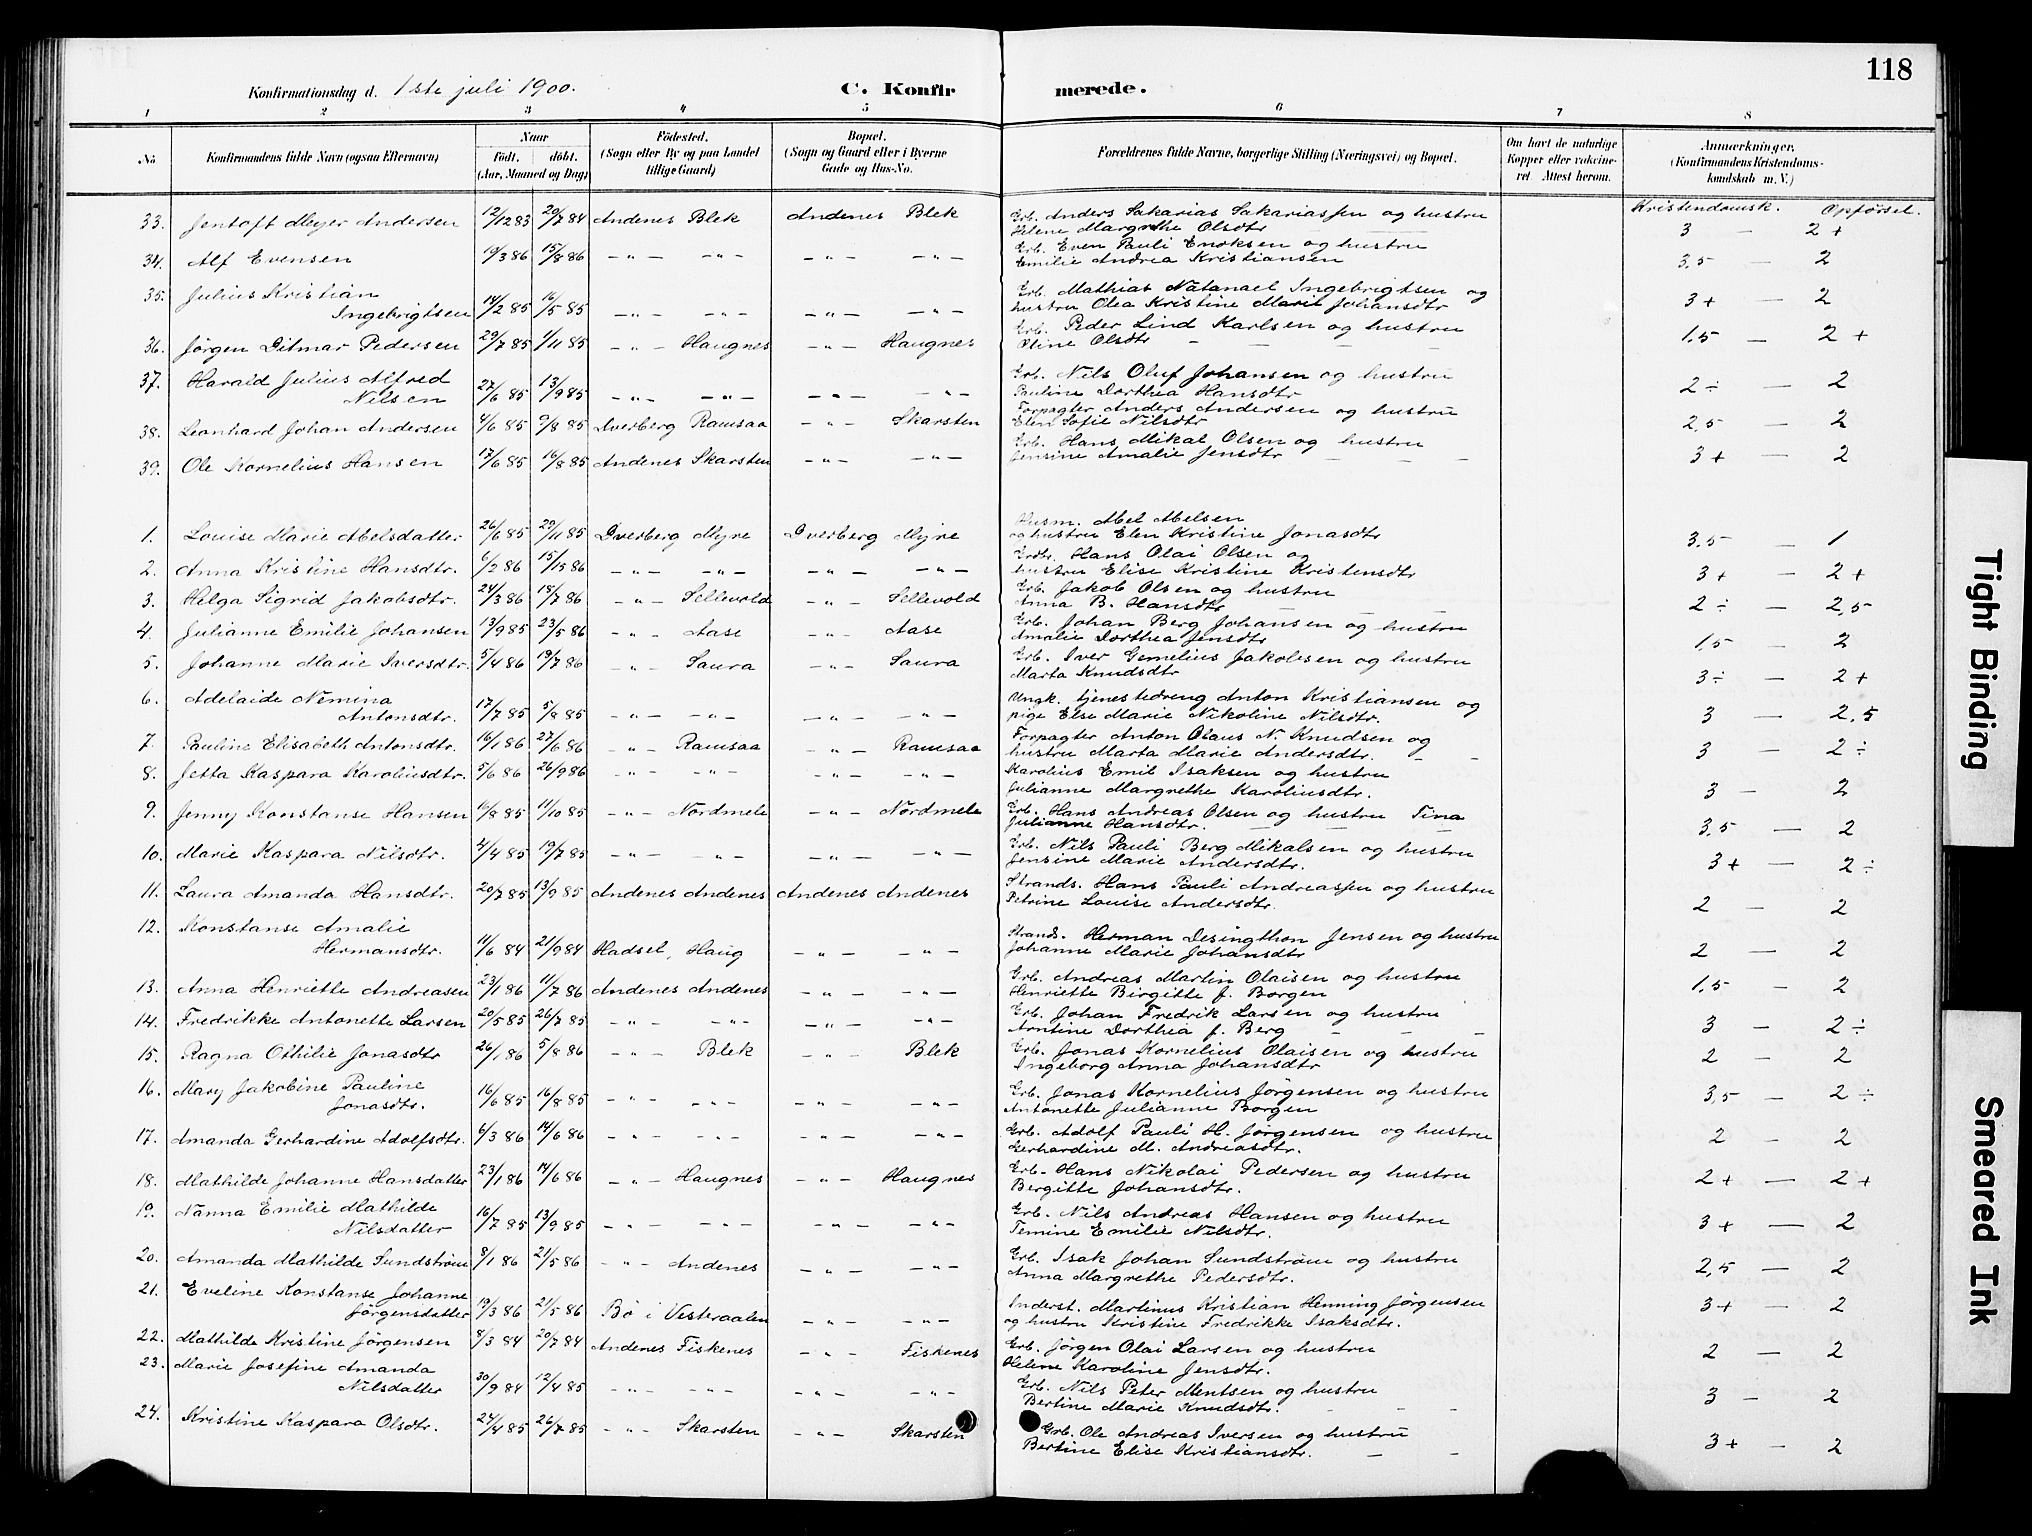 118
Konfirmationsdag d. 1ste juli 1900. C. Konfirmerede.
1 2 3 4 5 6 7 8
No Konfirmandens fulde Navn (ogsaa Efternavn) Naar født. døbt. (Aar, Maaned og Dag) Fødested. (Sogn eller By og paa Landet tillige Gaard) Bopæl. (Sogn og Gaard eller i Byerne Gade og Hus-No. Forældrenes fulde Navne, borgerlige Stilling (Næringsvei) og Bopæl. Om havt de naturlige Kopper eller vakcineret. Attest herom. Anmærkninger. (Konfirmandens Kristendomskundskab m. V.)
Kristendomsk. Opførsel.
33. Jentoft Meyer Andersen 12/12 83 20/7 84 Andenes Blek Andenes Blek Grb. Anders Sakarias Sakariassen og hustru Helene Margrethe Olsdtr 3 — 2+
34. Alf Evensen 19/3 86 15/8 86 —„— —„— —„— —„— Grb. Even Pauli Enoksen og hustru Emilie Andrea Kristiansen 3,5 — 2
35. Julius Kristian Ingebrigtsen 14/2 85 16/5 85 —„— —„— —„— —„— Grb. Mathias Natanael Ingebrigtsen og hustru Olea Kristine Marie Johansdtr 3+ — 2
36. Jørgen Ditmar Pedersen 29/7 85 1/11 85 —„— Haugnes —„— Haugnes Grb. Peder Lind Karlsen og hustru Oline Olsdtr 1,5 — 2+
37. Harald Julius Alfred Nilsen 27/6 85 13/9 85 —„— —„— —„— —„— Grb. Nils Oluf Johansen og hustru Pauline Dorthea Hansdtr 2÷ — 2
38. Leonhard Johan Andersen 4/6 85 9/8 85 Dverberg Ramsaa —„— Skarsten Forpagter Anders Andersen og hustru Elen Sofie Nilsdtr 2,5 — 2
39. Ole Kornelius Hansen 17/6 85 16/8 85 Andenes Skarsten —„— —„— Grb. Hans Mikal Olsen og hustru Jensine Amalie Jensdtr 3+ — 2
1. Louise Marie Abelsdatter 26/6 85 29/11 85 Dverberg Myre Dverberg Myre Husm. Abel Abelsen og hustru Elen Kristine Jonasdtr 3,5 — 1
2. Anna Kristine Hansdtr. 6/2 86 —„— —„— —„— —„— Grdbr. Hans Olai Olsen og hustru Elise Kristine Kristensdtr 3+ — 2+
3. Helga Sigrid Jakobsdtr. 24/3 86 18/7 86 —„— Sellevold —„— Sellevold Grb. Jakob Olsen og hustru Anna B. Hansdtr 2÷ — 2,5
4. Julianne Emilie Johansen 13/9 85 23/5 86 —„— Aase —„— Aase Grb. Johan Berg Johansen og hustru Amalie Dorthea Jensdtr 1,5 — 2
5. Johanne Marie Iversdtr. 5/4 86 19/7 86 —„— Saura —„— Saura Grb. Iver Gemelius Jakobsen og hustru Marta Knudsdtr 3÷ — 2+
6. Adelaide Nemina Antonsdtr. 17/7 85 5/8 85 —„— —„— —„— —„— Ungk. tjenestedreng Anton Kristiansen og pige Else Marie Nikoline Nilsdtr. 3 — 2,5
7. Pauline Elisabeth Antonsdtr. 16/1 86 27/6 86 —„— Ramsaa —„— Ramsaa Forpagter Anton Olaus N. Knudsen og hustru Marta Marie Andersdtr. 3 — 2÷
8. Jetta Kaspara Karoliusdtr. 5/6 86 26/9 86 —„— —„— —„— —„— Karolius Emil Isaksen og hustru Julianne Margrethe Karoliusdtr. 3 — 2
9. Jenny Konstanse Hansen 16/8 85 11/10 85 —„— Nordmele —„— Nordmele Grb. Hans Andreas Olsen og hustru Tina Julianne Hansdtr. 3,5 — 2
10. Marie Kaspara Nilsdtr. 4/4 85 19/7 85 —„— —„— —„— —„— Grb. Nils Pauli Berg Mikalsen og hustru Jensine Marie Andersdtr. 3+ — 2÷
11. Laura Amanda Hansdtr. 20/7 85 13/9 85 Andenes Andenes Andenes Andenes Strands. Hans Pauli Andreassen og hustru Petrine Louise Andersdtr. 2 — 2
12. Konstanse Amalie Hermansdtr. 11/6 84 21/9 84 Hadsel, Haug —„— —„— Strands. Herman Desingthon Jensen og hustru Johanne Marie Johansdtr 2 — 2
13. Anna Henriette Andreasen 23/1 86 11/7 86 Andenes Andenes —„— —„— Grb. Andreas Martin Olaisen og hustru Henriette Birgitte f. Borgen 1,5 — 2
14. Fredrikke Antonette Larsen 20/5 85 26/7 85 —„— —„— —„— —„— Grb. Johan Fredrik Larsen og hustru Arntine Dorthea f. Berg 3 — 2÷
15. Ragna Othilie Jonasdtr 26/1 86 5/8 86 —„— Blek —„— Blek Grb. Jonas Kornelius Olaisen og hustru Ingeborg Anna Johansdtr 2 — 2
16. Mary Jakobine Pauline Jonasdtr. 16/6 85 16/8 85 —„— —„— —„— —„— Grb. Jonas Kornelius Jørgensen og hustru Antonette Julianne Borgen 3,5 — 2÷
17. Amanda Gerhardine Adolfsdtr. 6/3 86 14/6 86 —„— —„— —„— —„— Grb. Adolf Pauli H. Jørgensen og hustru Gerhardine M. Andreasdtr. 2 — 2
18. Mathilde Johanne Hansdatter 23/1 86 14/6 86 —„— Haugnes —„— Haugnes Grb. Hans Nikolai Pedersen og hustru Bergitte Johansdtr. 2+ — 2+
19. Nanna Emilie Mathilde Nilsdatter 16/7 85 13/9 85 —„— —„— —„— —„— Grb. Nils Andreas Hansen og hustru Temine Emilie Nilsdtr. 3+ — 2
20. Amanda Mathilde Sundstrøm 8/1 86 21/5 86 —„— Andenes —„— —„— Grb. Isak Johan Sundstrøm og hustru Anna Margrethe Pedersdtr. 2,5 — 2
21. Eveline Konstanse Johanne Jørgensdatter 19/3 86 21/5 86 Bø i Vesteraalen —„— —„— Inderst. Martinus Kristian Henning Jørgensen og hustru Kristine Fredrikke Isaksdtr. 3+ — 2
22. Mathilde Kristine Jørgensen 8/3 84 20/7 84 Andenes Fiskenes —„— Fiskenes Grb. Jørgen Olai Larsen og hustru Helene Karoline Jensdtr. 2 — 2
23. Marie Josefine Amanda Nilsdatter 30/9 84 12/4 85 —„— —„— —„— —„— Grb. Nils Peter Mentsen og hustru Bertine Marie Knudsdtr. 3 — 2
24. Kristine Kaspara Olsdtr. 24/4 85 26/7 85 —„— Skarsten —„— Skarsten Grb. Ole Andreas Iversen og hustru Bertine Elise Kristiansdtr. 3+ — 2
Tight Binding
Smeared Ink